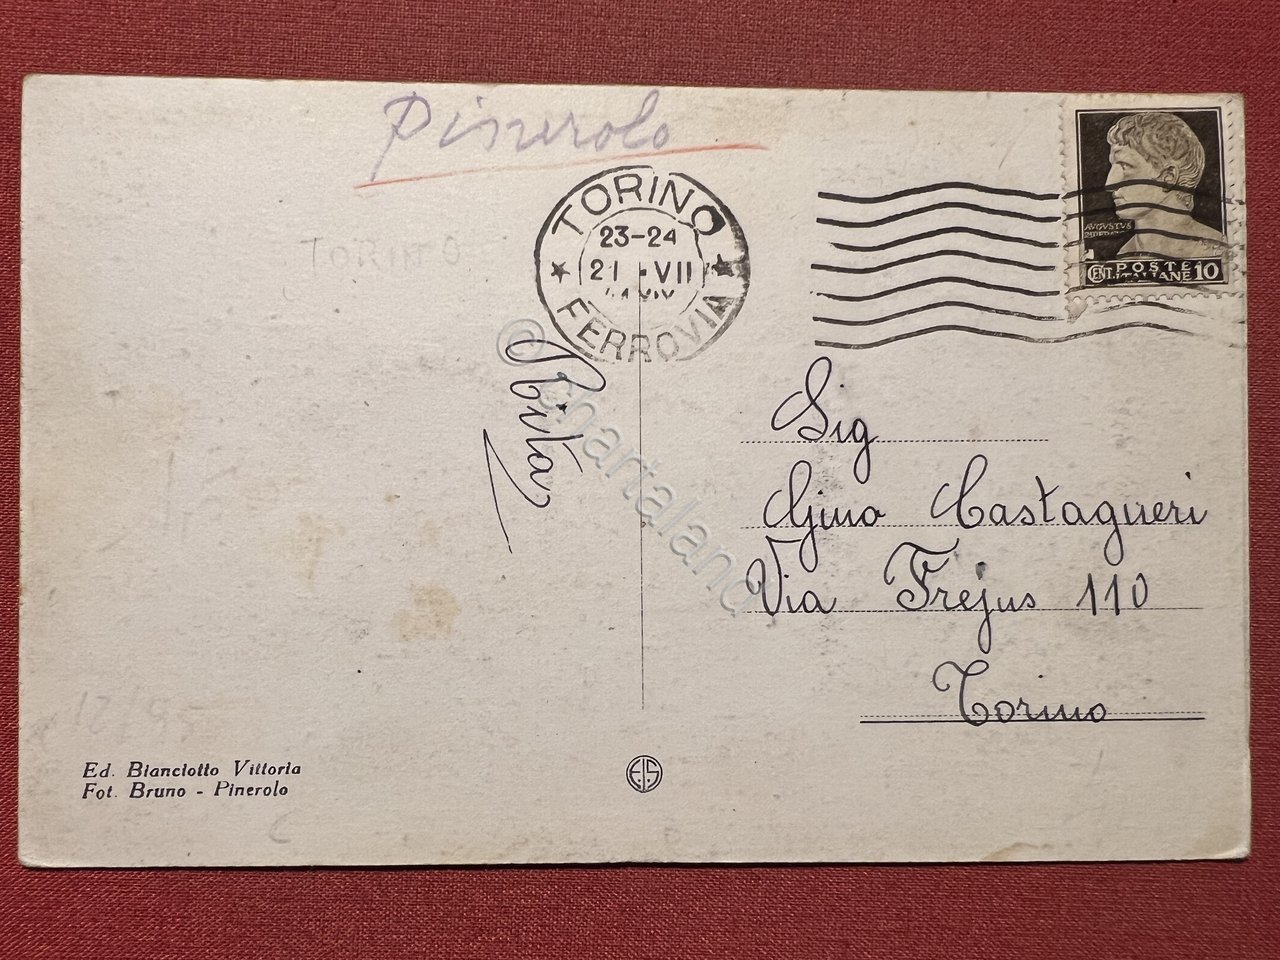 Pinerolo
TORINO
23-24
21 · VII
FERROVIA
AUGUSTUS
CENT. POSTE ITALIANE 10
Rita
© chartaland
Sig
Gino Castagneri
Via Frejus 110
Torino
Ed. Bianciotto Vittoria
Fot. Bruno - Pinerolo